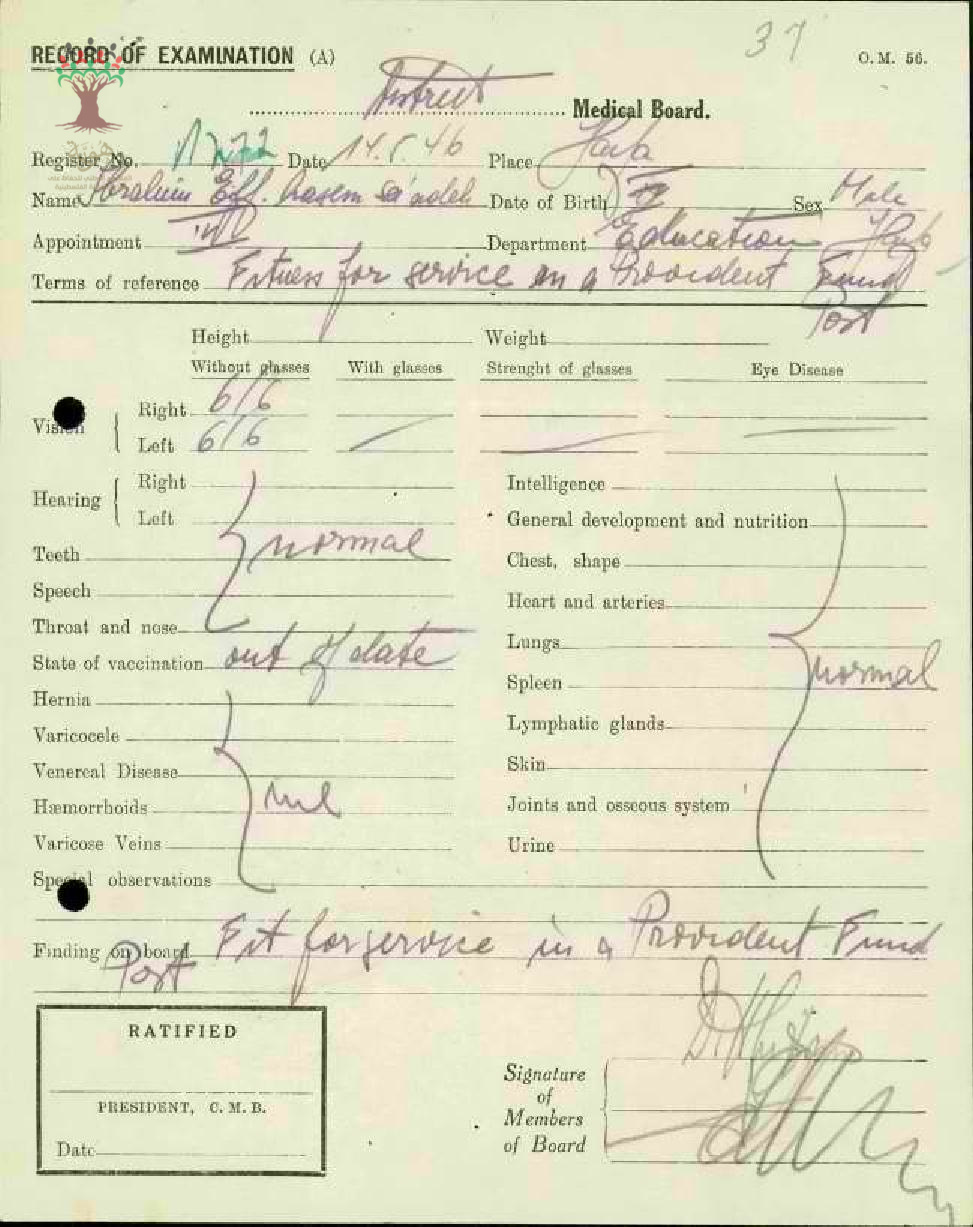 37
RECORD OF EXAMINATION (A) O.M. 56.
District Medical Board.
Register No. Date 14.5.46 Place Haifa
Name Ibrahim Eff. Sa'adeh Date of Birth Sex Male
Appointment Department Education Haifa
Terms of reference Fitness for service in a Provident Fund
Post
Height Weight
Without glasses With glasses Strenght of glasses Eye Disease
Vision { Right 6/6
Left 6/6
Hearing { Right
Left
Teeth normal
Speech
Throat and nose
State of vaccination out of date
Hernia
Varicocele
Venereal Disease
Hæmorrhoids nil
Varicose Veins
Special observations
Intelligence
General development and nutrition
Chest, shape
Heart and arteries
Lungs
Spleen normal
Lymphatic glands
Skin
Joints and osseous system
Urine
Finding on board Fit for service in a Provident Fund
Post
RATIFIED
PRESIDENT, C. M. B.
Date
Signature
of
Members
of Board